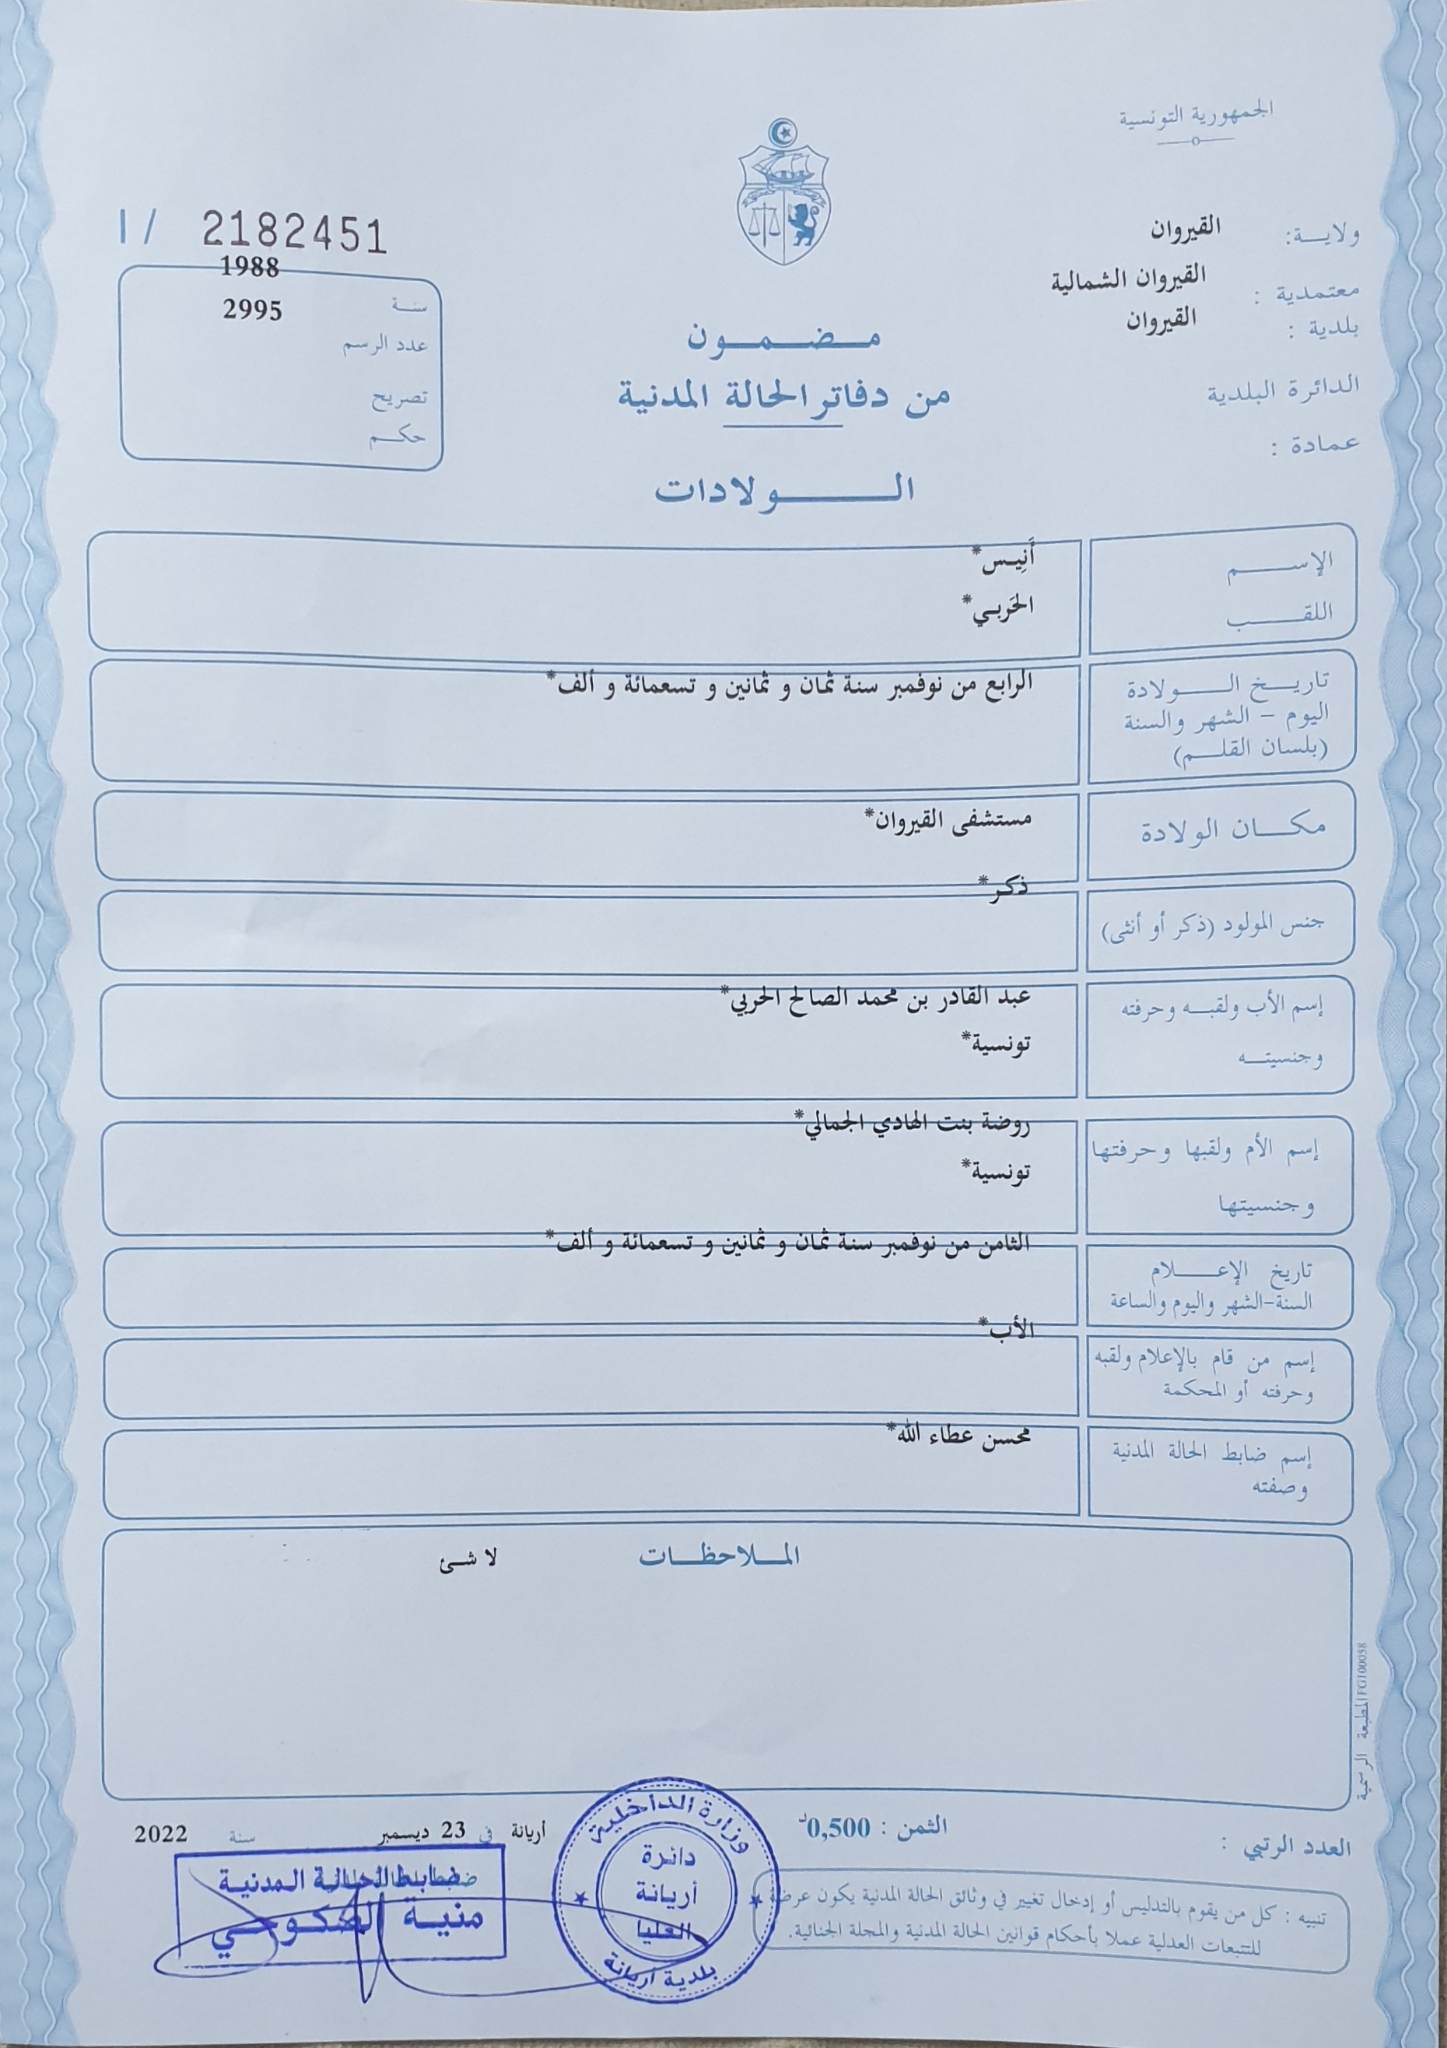 الجمهورية التونسية
ولايـــة: القيروان
معتمدية : القيروان الشمالية
بلدية : القيروان
الدائرة البلدية
عمادة :
I / 2182451
سنـــة 1988
عدد الرسم 2995
تصريح
حكـــم
مـــضـــمـــون
من دفاتر الحالة المدنية
الـــــولادات
الإســـــم أَنِيـس*
اللقـــــب الحَربـي*
تاريـــخ الـــــولادة الرابع من نوفمبر سنة ثمان و ثمانين و تسعمائة و ألف*
اليوم – الشهر والسنة
(بلسان القلـــم)
مكـــان الولادة مستشفى القيروان*
جنس المولود (ذكر أو أنثى) ذكـر*
إسم الأب ولقبـــه وحرفته عبد القادر بن محمد الصالح الحربي*
وجنسيتـــه تونسية*
إسم الأم ولقبها وحرفتها روضة بنت الهادي الجمالي*
وجنسيتها تونسية*
تاريخ الإعـــــلام الثامن من نوفمبر سنة ثمان و ثمانين و تسعمائة و ألف*
السنة-الشهر واليوم والساعة
إسم من قام بالإعلام ولقبه الأب*
وحرفته أو المحكمة
إسم ضابط الحالة المدنية محسن عطاء الله*
وصفته
المـــلاحظـــات لا شـئ
المطبعة الرسمية FG100058
العدد الرتبي :
الثمن : 0,500د
أريانة في 23 ديسمبر سنة 2022
تنبيه : كل من يقوم بالتدليس أو إدخال تغيير في وثائق الحالة المدنية يكون عرضة
للتتبعات العدلية عملا بأحكام قوانين الحالة المدنية والمجلة الجنائية.
وزارة الداخلية
دائرة
أريانة
العليا
بلدية أريانة
ضابط الحالة المدنية
منيـة الضكوحي